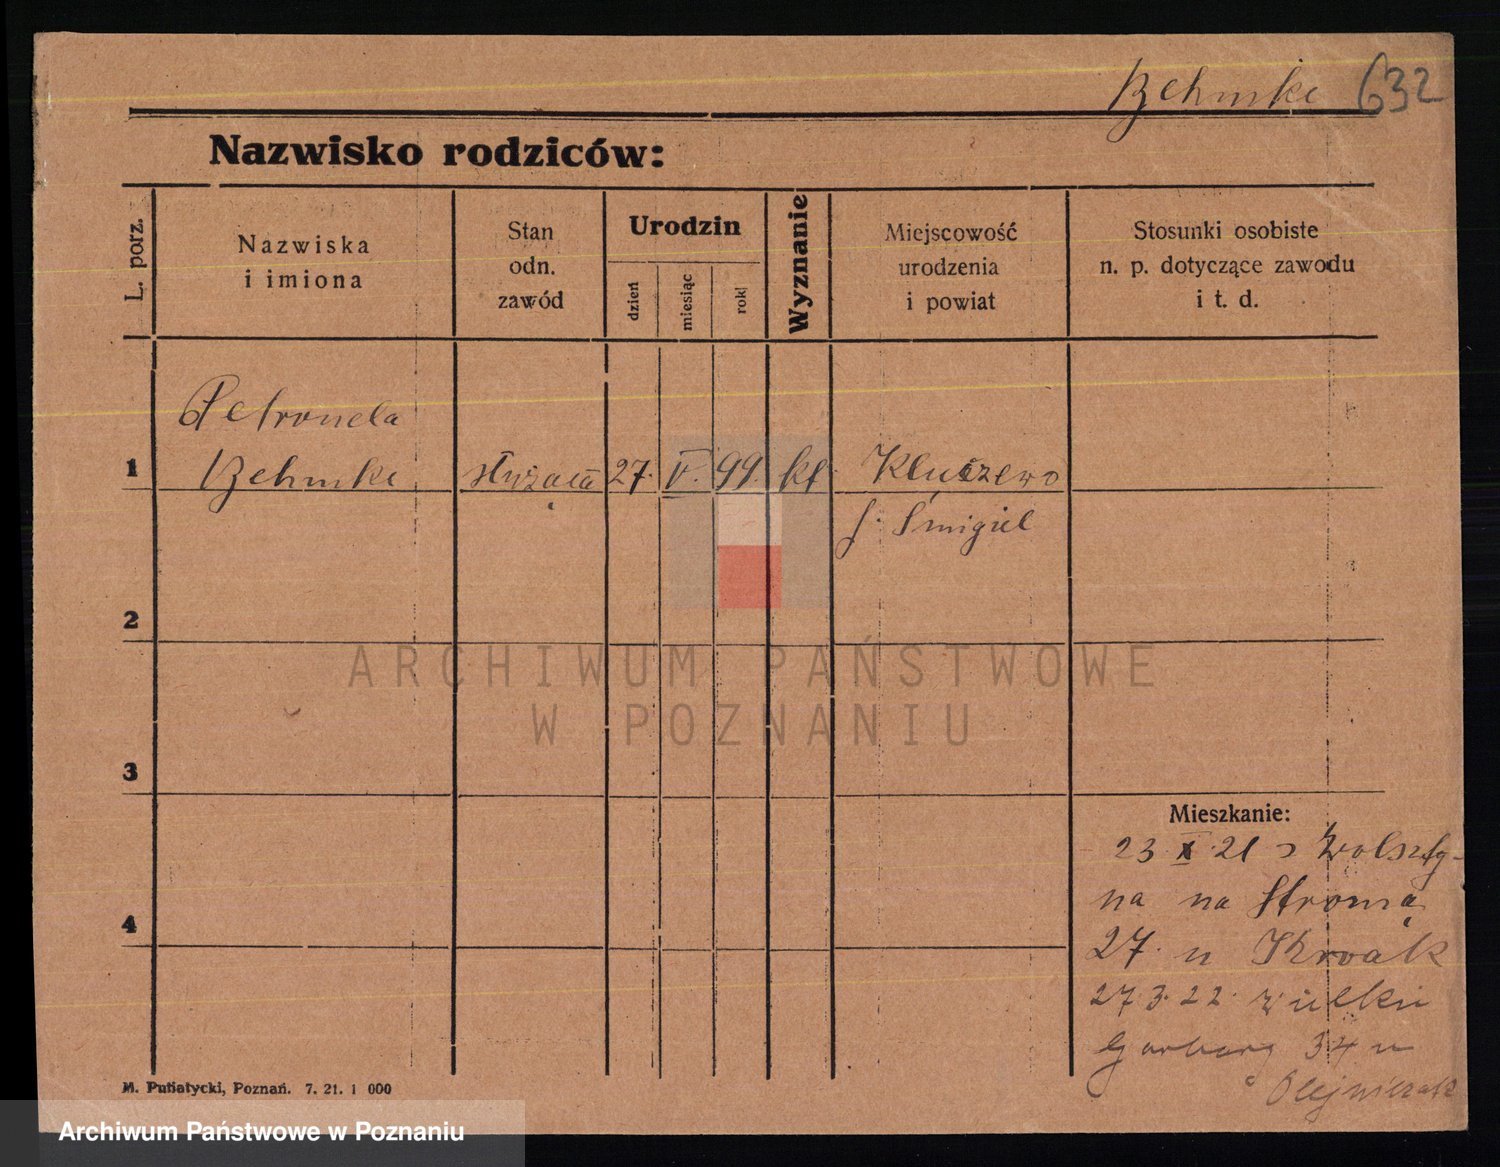 Behmke 632
Nazwisko rodziców:
L. porz.
Nazwiska
i imiona
Stan
odn.
zawód
Urodzin
dzień
miesiąc
rok
Wyznanie
Miejscowość
urodzenia
i powiat
Stosunki osobiste
n. p. dotyczące zawodu
i t. d.
Petronela
1 Behmke służąca 27. V. 99. kt. Kluczewo
Śmigiel
2
ARCHIWUM PAŃSTWOWE
W POZNANIU
3
Mieszkanie:
23 X 21 z Wolszty-
na na Stromą
4
27. u Kroak
27 3. 22. Wielkie
Garbary 34 u
Olejniczak
M. Putiatycki, Poznań. 7. 21. 1 000
Archiwum Państwowe w Poznaniu